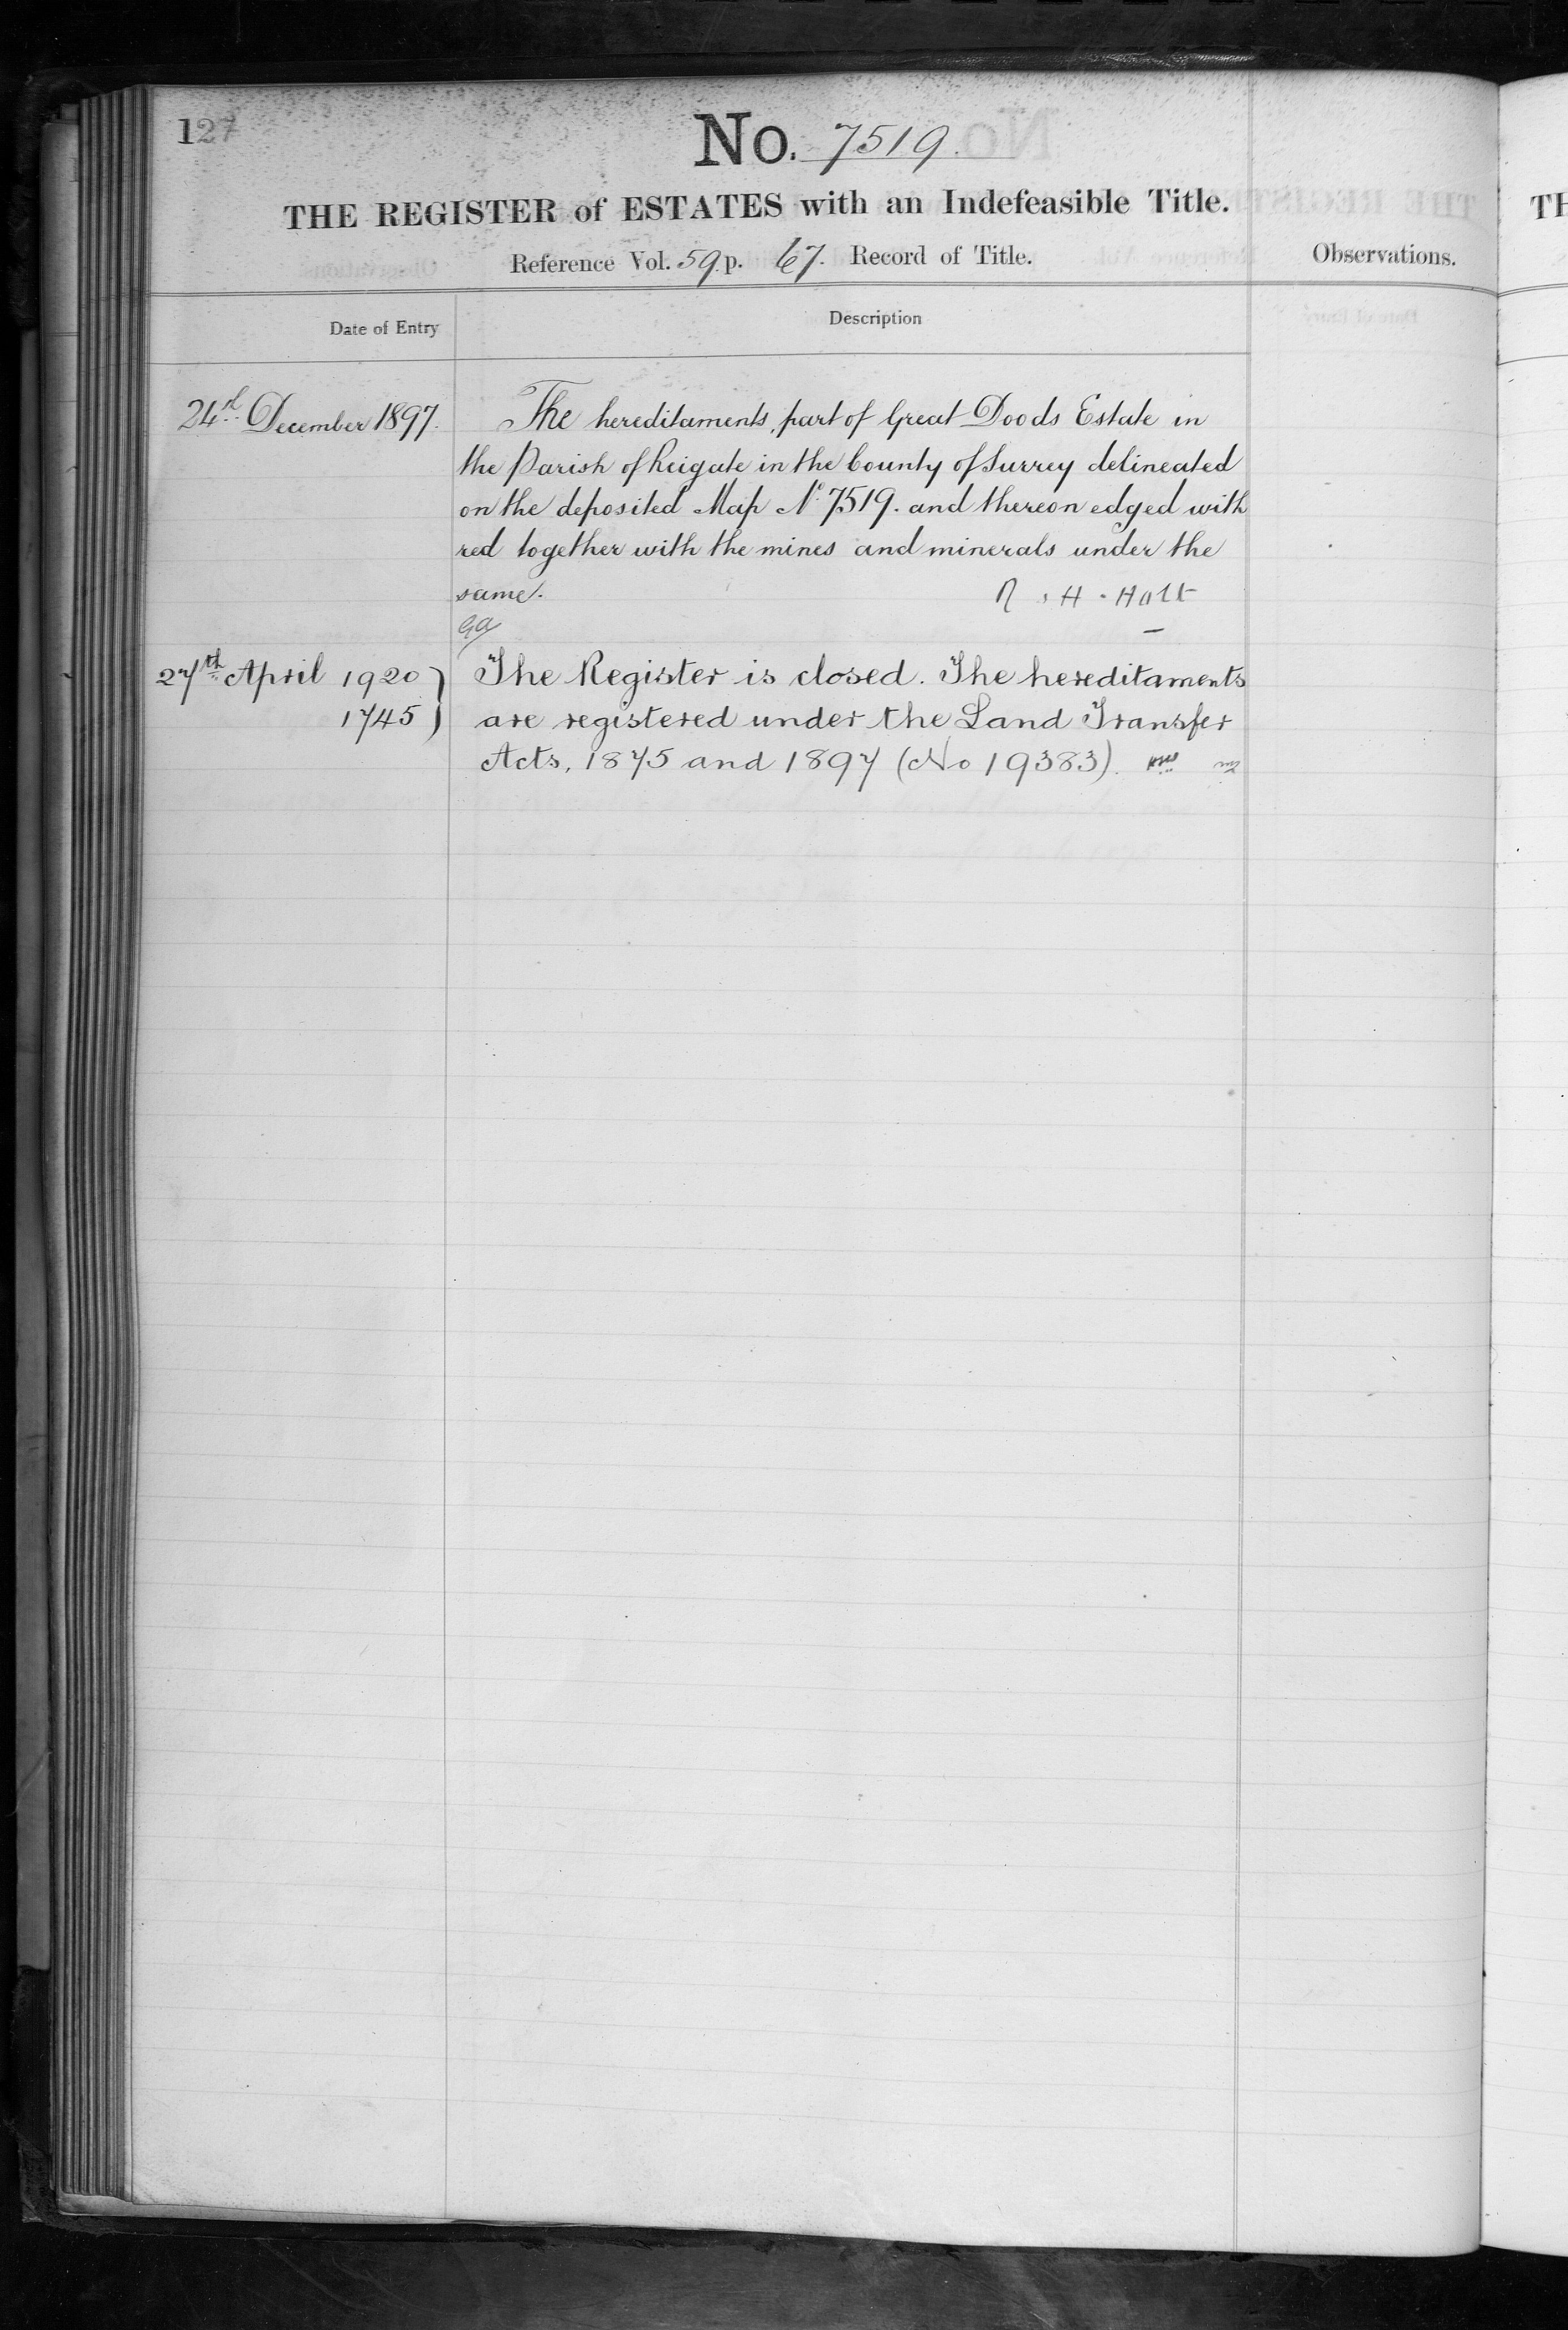 127
No. 7519.
THE REGISTER of ESTATES with an Indefeasible Title.
Reference Vol. 59. p. 67. Record of Title.
Observations.
Date of Entry
Description
24th December 1897.
The hereditaments, part of Great Doods Estate in
the Parish of Reigate in the County of Surrey delineated
on the deposited Map No. 7519. and thereon edged with
red together with the mines and minerals under the
same. R. H. Holt
27th April 1920 )
1745 )
The Register is closed. The hereditaments
are registered under the Land Transfer
Acts, 1875 and 1897 (No 19383).
TH